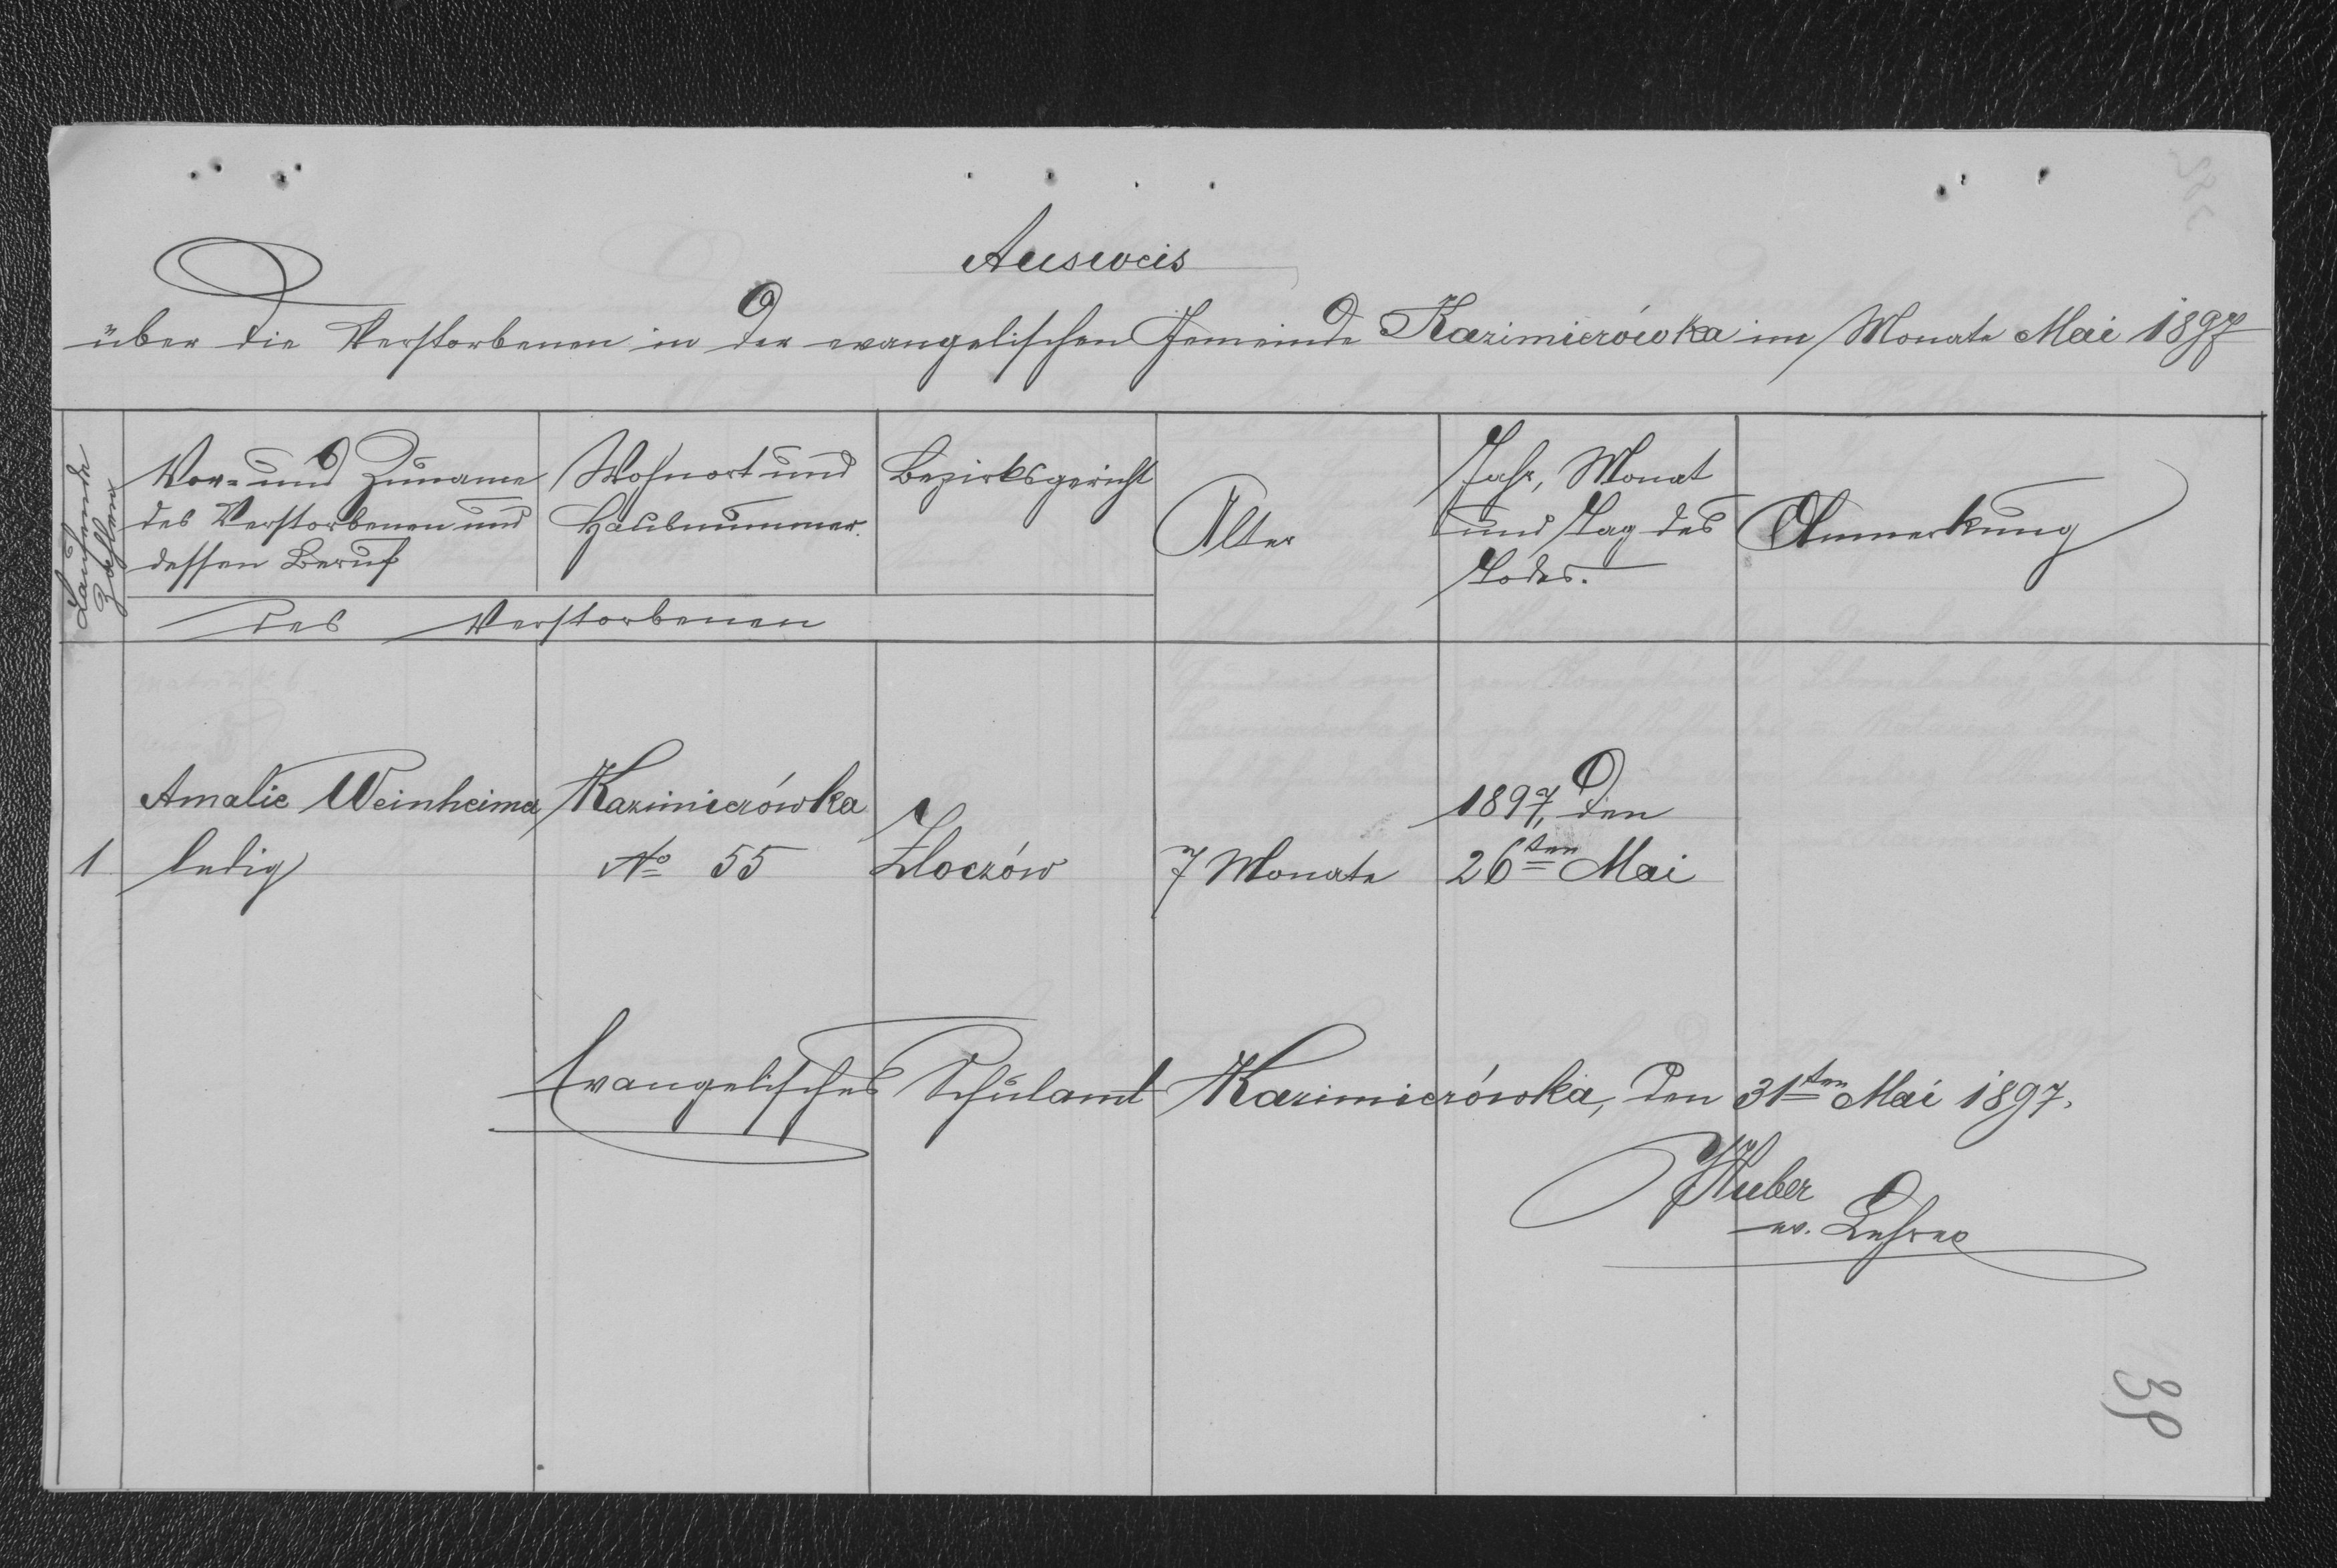 Ausweis
über die Verstorbenen in der evangelischen Gemeinde Kazimierówka im Monate Mai 1897
Laufende Zahlen
Vor- und Zuname des Verstorbenen und dessen Beruf
Wohnort und Hausnummer.
Bezirksgericht
Alter
Jahr, Monat und Tag des Todes.
Anmerkung
des Verstorbenen
Amalie Weinheimer Kazimierówka 1897, den
1 ledig No 55 Zloczów 7 Monate 26ten Mai
Evangelisches Schulamt Kazimierówka, den 31ten Mai 1897.
Huber
ev. Lehrer
38